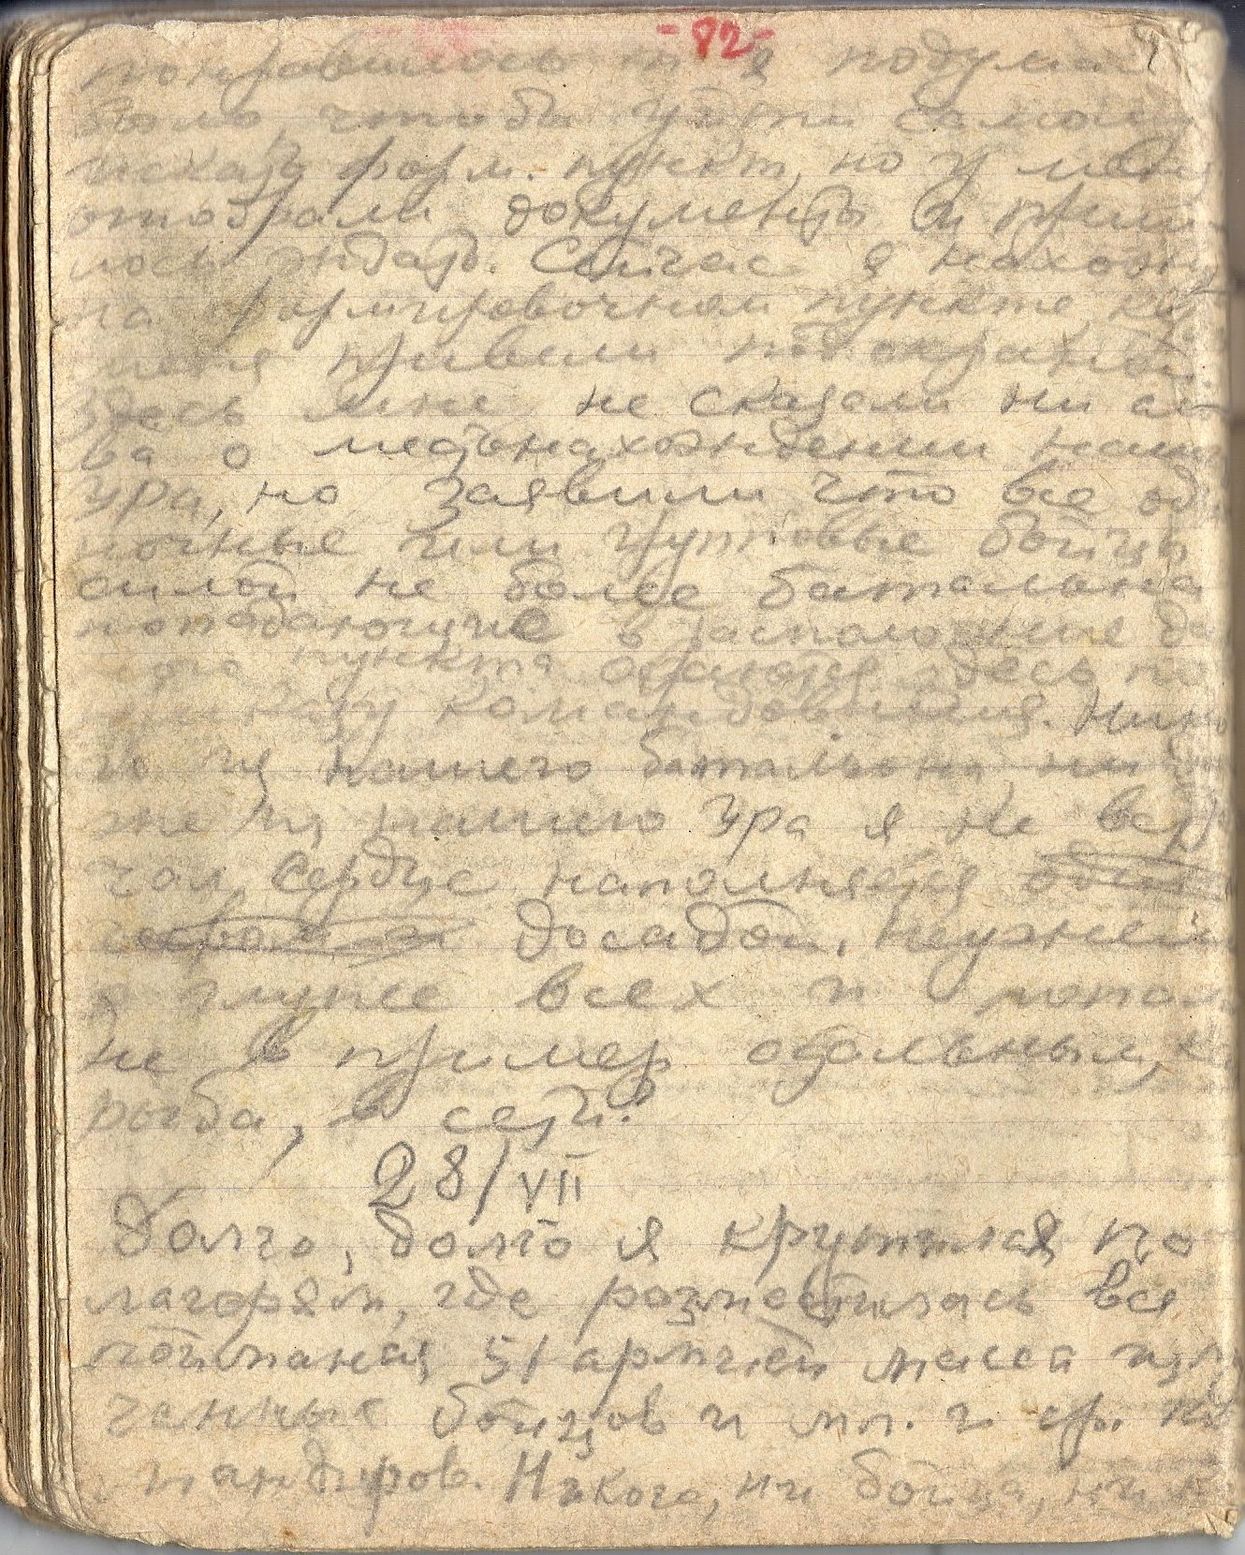 -82-
понравилось и я подумал
было, чтоба уйти самому
искать форм. пункт, но у меня
отобрали документы и приш-
лось ждать. Сейчас я нахожу
на формировочном пункте, ку
меня привели под охраной.
здесь мне не сказали ни сло-
ва о местънахождении наше
ура, но заявили что все оди
ночные или групповые бойцы
силой не более батальона
попадающие в расположение да
ного пункта остаются здесь по
приказу командования. Нико
го из нашего батальона ни
же из нашего Ура я не встре
чал, сердце наполняется
досадой. Неужели
я глупее всех и попал
не в пример остальным, ка
рыба, в сеть?
28/VII
Долго, долго я крутился по
лагерям, где разместилась вся
пойманая 51 армией масса изм
ченных бойцов и мл. и ср. ко
мандиров. Никого, ни бойца, ни к